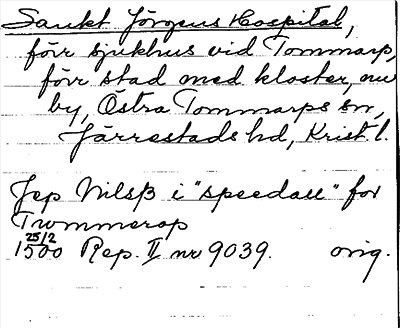 Sankt Jörgens Hospital,
förr sjukhus vid Tommarp,
förr stad med kloster, nu
by, Östra Tommarps sn,
Järrestads hd, Krist. l.
Jep Nilsß i "speedall" for
Trommerop
25/2
1500 Rep. II nr 9039. orig.